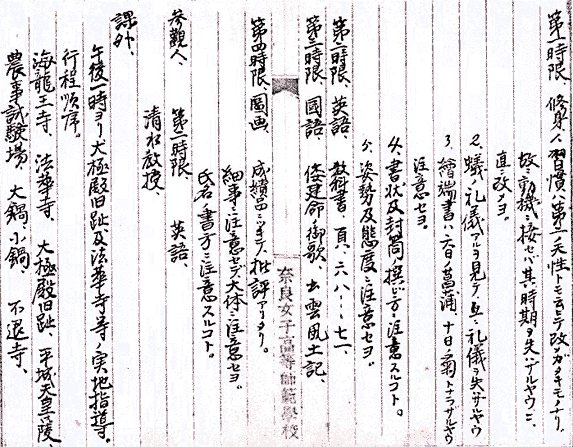 第一時限、修身、習慣ハ第二天性トモ云ヒテ改メガタキモノナリ、
故ニ動機ニ接セバ其時期ヲ失ハザルヤウニ、
直ニ改メヨ。
2、蟻ノ礼儀アルヲ見テ互ニ礼儀ヲ失ハザルヤウ
3、繪端書ハ六日ノ菖蒲、十日ノ菊トナラザルヤウ
注意セヨ。
4、書状及封筒ノ撰ビ方ニ注意スルコト。
5、姿勢及態度ニ注意セヨ。
第二時限、英語、教科書、頁、六八ー七一、
第三時限、國語、倭建命ノ御歌、出雲風土記、
奈良女子高等師範學校
第四時限、圖画、成績品ニツキテノ批評アリタリ。
細事ニ注意セズ大体ニ注意セヨ。
氏名ノ書方ニ注意スルコト。
參觀人、第二時限、英語、
清水教授、
課外、
午後一時ヨリ大極殿旧趾及法華寺等ノ実地指導。
行程順序。
海龍王寺、法華寺、大極殿旧趾、平城天皇陵、
農事試験場、大鍋小鍋、不退寺、